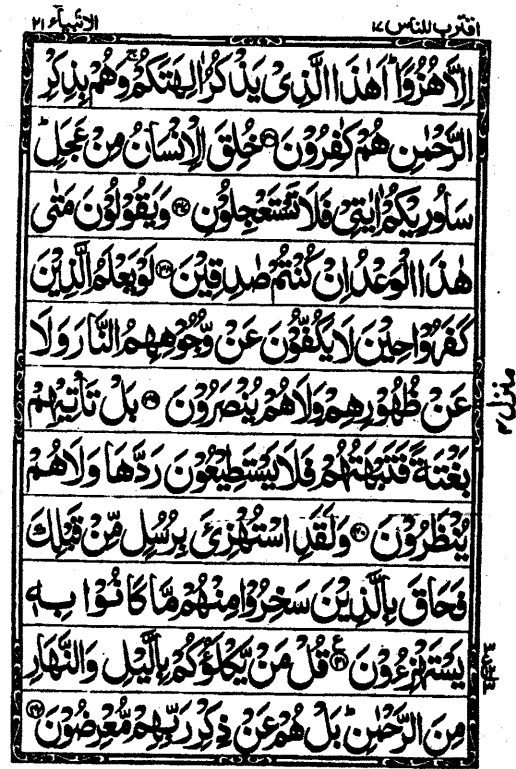 اقترب للناس ١٧
الانبيآء ٢١
اِلَّا هُزُوًا ؕ اَهٰذَا الَّذِیْ یَذْكُرُ اٰلِهَتَكُمْ ۚ وَهُمْ بِذِكْرِ
الرَّحْمٰنِ هُمْ كٰفِرُوْنَ ﴿۳۶﴾ خُلِقَ الْاِنْسَانُ مِنْ عَجَلٍ ؕ
سَاُورِیْكُمْ اٰیٰتِیْ فَلَا تَسْتَعْجِلُوْنِ ﴿۳۷﴾ وَیَقُوْلُوْنَ مَتٰی
هٰذَا الْوَعْدُ اِنْ كُنْتُمْ صٰدِقِیْنَ ﴿۳۸﴾ لَوْ یَعْلَمُ الَّذِیْنَ
كَفَرُوْا حِیْنَ لَا یَكُفُّوْنَ عَنْ وُّجُوْهِهِمُ النَّارَ وَلَا
عَنْ ظُهُوْرِهِمْ وَلَا هُمْ یُنْصَرُوْنَ ﴿۳۹﴾ بَلْ تَاْتِیْهِمْ
بَغْتَةً فَتَبْهَتُهُمْ فَلَا یَسْتَطِیْعُوْنَ رَدَّهَا وَلَا هُمْ
یُنْظَرُوْنَ ﴿۴۰﴾ وَلَقَدِ اسْتُهْزِئَ بِرُسُلٍ مِّنْ قَبْلِكَ
فَحَاقَ بِالَّذِیْنَ سَخِرُوْا مِنْهُمْ مَّا كَانُوْا بِهٖ
یَسْتَهْزِءُوْنَ ﴿۴۱﴾ ع قُلْ مَنْ یَّكْلَؤُكُمْ بِالَّیْلِ وَالنَّهَارِ
مِنَ الرَّحْمٰنِ ؕ بَلْ هُمْ عَنْ ذِكْرِ رَبِّهِمْ مُّعْرِضُوْنَ ﴿۴۲﴾
منزل ۴